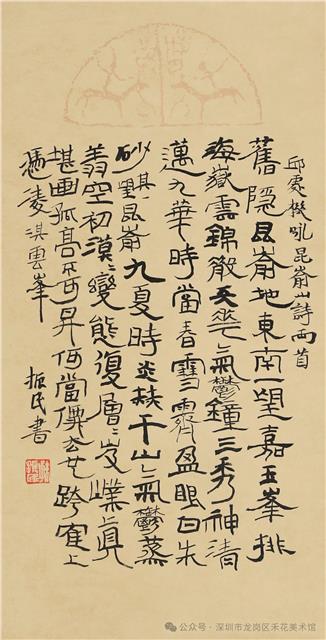 邱處機咏昆崳山詩兩首
舊隱昆崳地東南一望嘉五峯排
海嶽雲錦散天花氣鬱鍾三秀神清
邁九華時當春雪霽盈眼白朱
砂其二昆崳九夏時炎赫千山氣鬱蒸
空初漠漠變態復層層岌嶫真
堪画孤高不可昇何當僊去世跨寉上
憑凌淇雲峯 振民書
公众号·深圳市龙岗区禾花美术馆